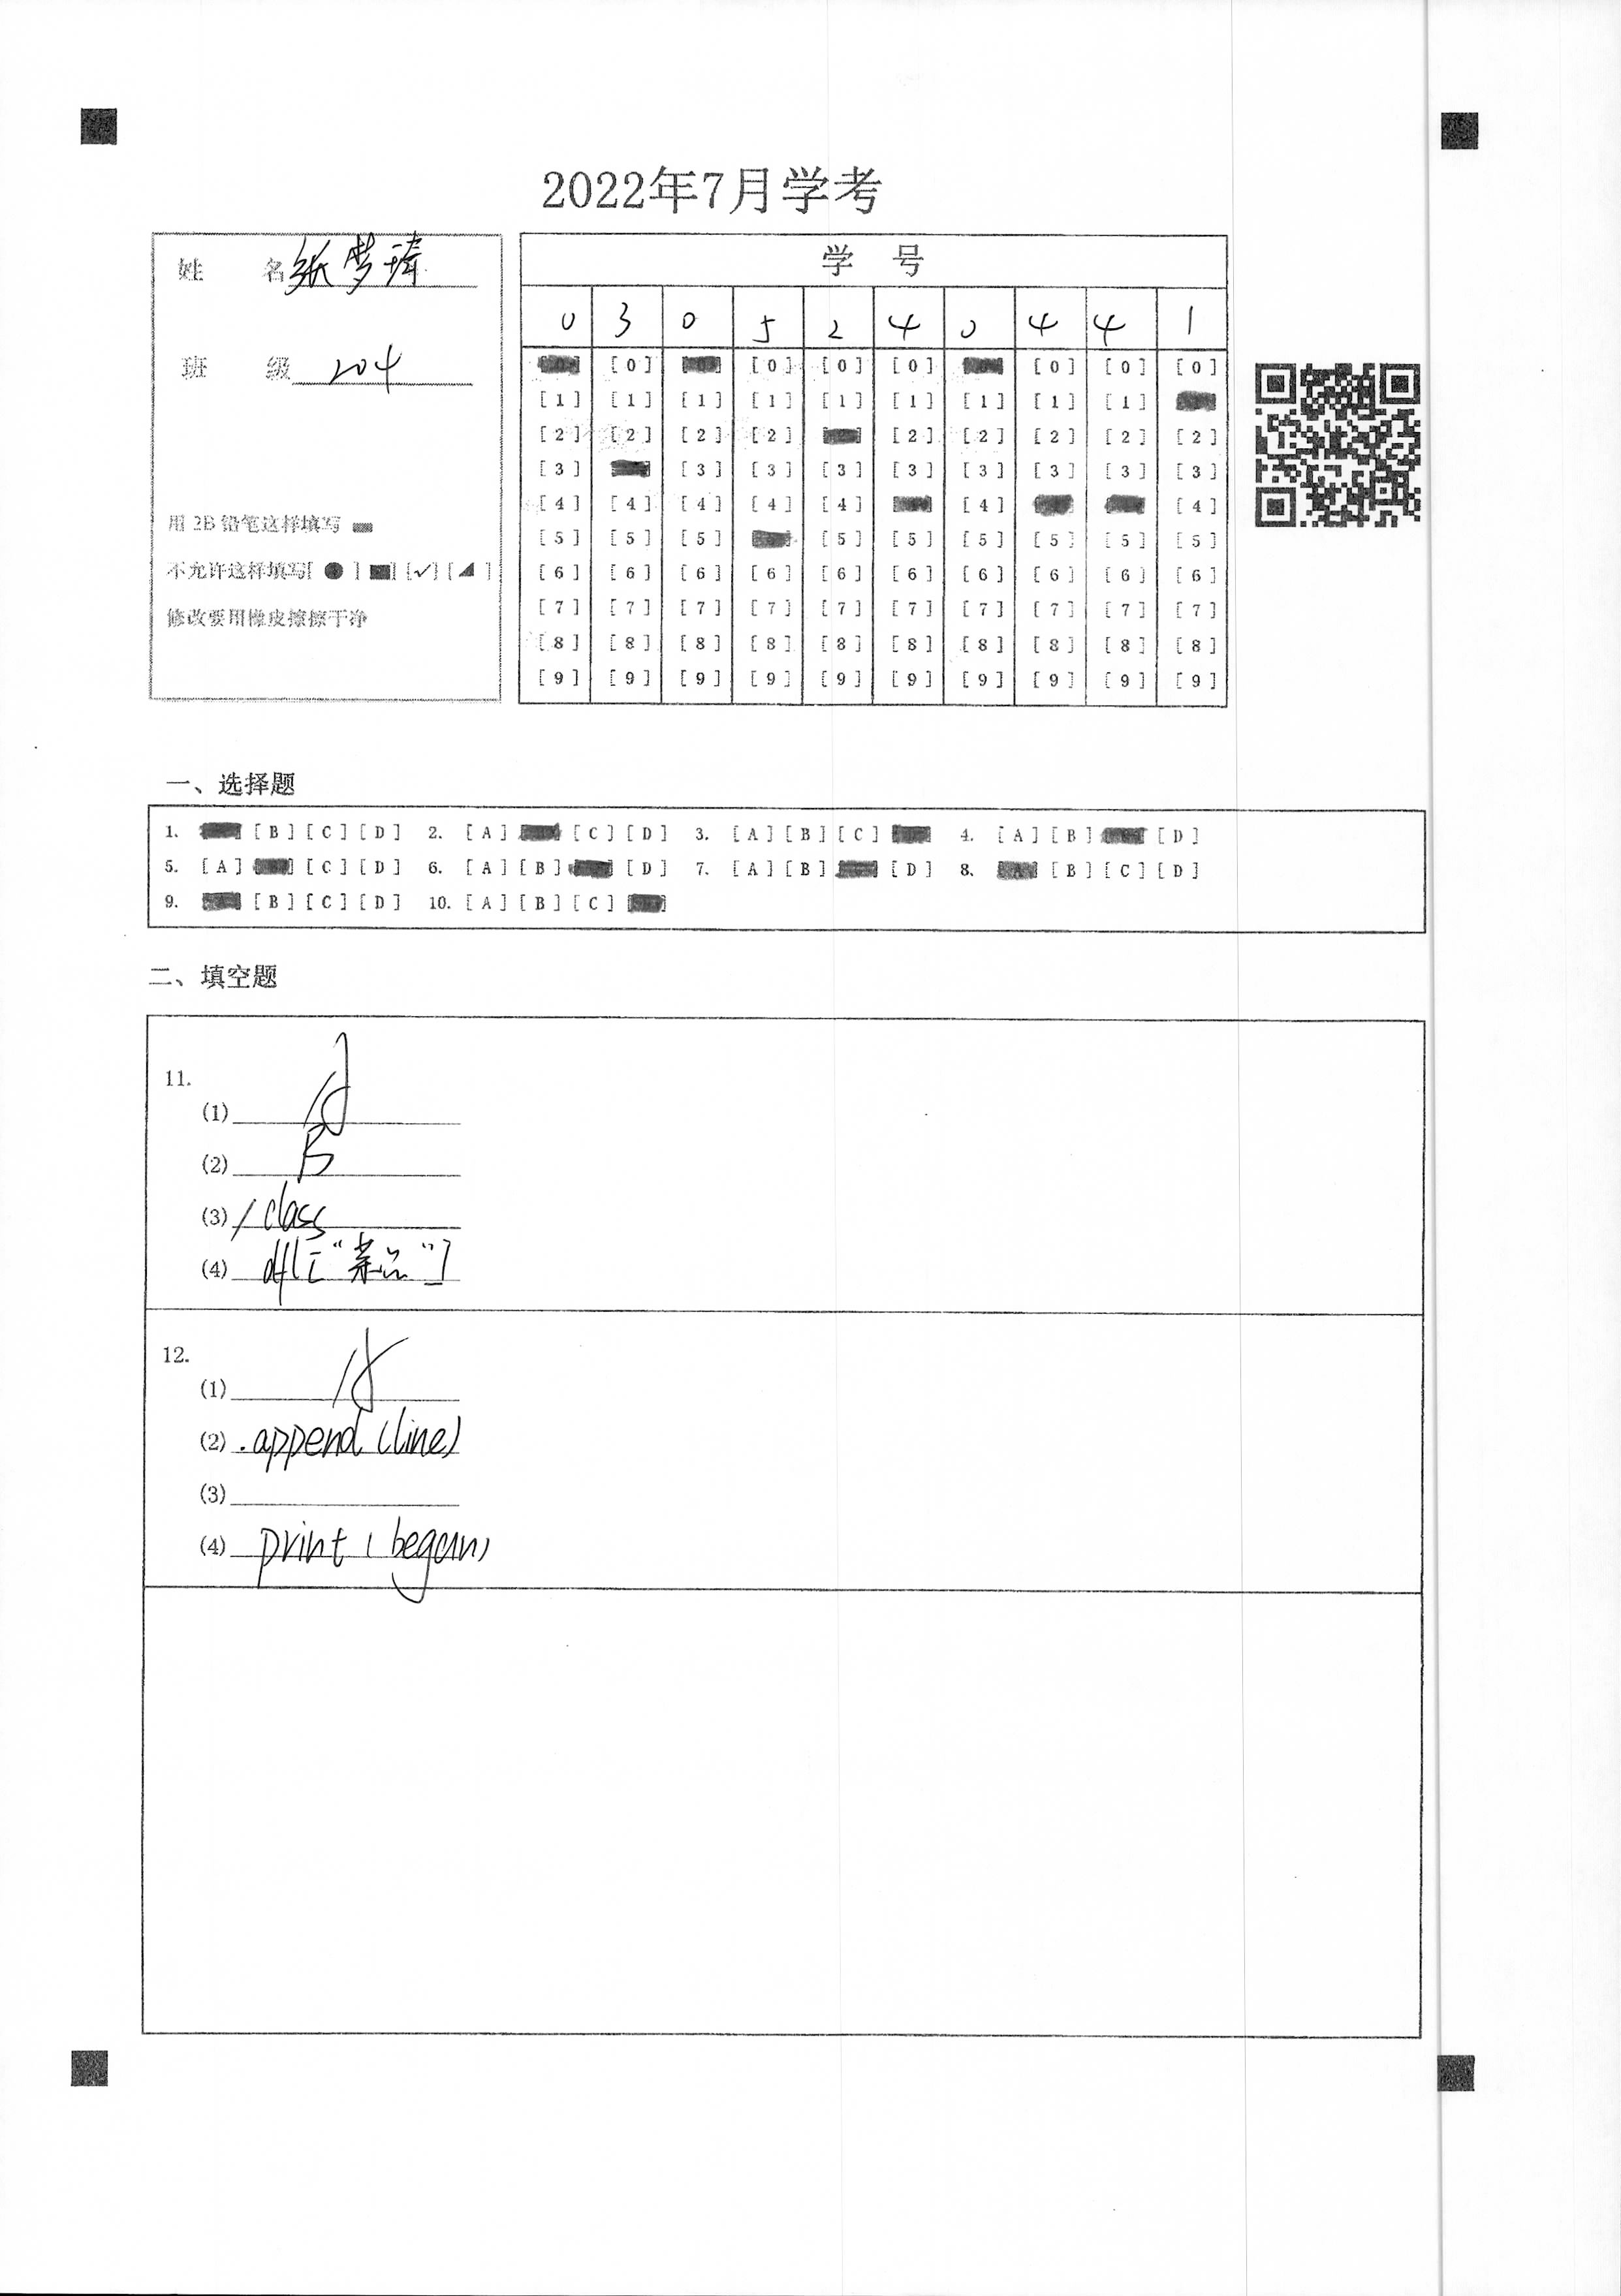 2022年7月学考
姓 名 纸梦瑋
班 级 204
用 2B 铅笔这样填写
不允许这样填写[ ● ] [■] [✓] [◢ ]
修改要用橡皮擦擦干净
学 号
0 3 0 5 2 4 0 4 4 1
[0] [0] [0] [0] [0] [0] [0]
[1] [1] [1] [1] [1] [1] [1] [1] [1]
[2] [2] [2] [2] [2] [2] [2] [2] [2]
[3] [3] [3] [3] [3] [3] [3] [3] [3]
[4] [4] [4] [4] [4] [4] [4]
[5] [5] [5] [5] [5] [5] [5] [5] [5]
[6] [6] [6] [6] [6] [6] [6] [6] [6] [6]
[7] [7] [7] [7] [7] [7] [7] [7] [7] [7]
[8] [8] [8] [8] [8] [8] [8] [8] [8] [8]
[9] [9] [9] [9] [9] [9] [9] [9] [9] [9]
一、选择题
1. [B] [C] [D] 2. [A] [C] [D] 3. [A] [B] [C] 4. [A] [B] [D]
5. [A] [C] [D] 6. [A] [B] [D] 7. [A] [B] [D] 8. [B] [C] [D]
9. [B] [C] [D] 10. [A] [B] [C]
二、填空题
11.
(1)
(2) B
(3) /class
(4) df["菜品"]
12.
(1)
(2) .append(line)
(3)
(4) print(began)